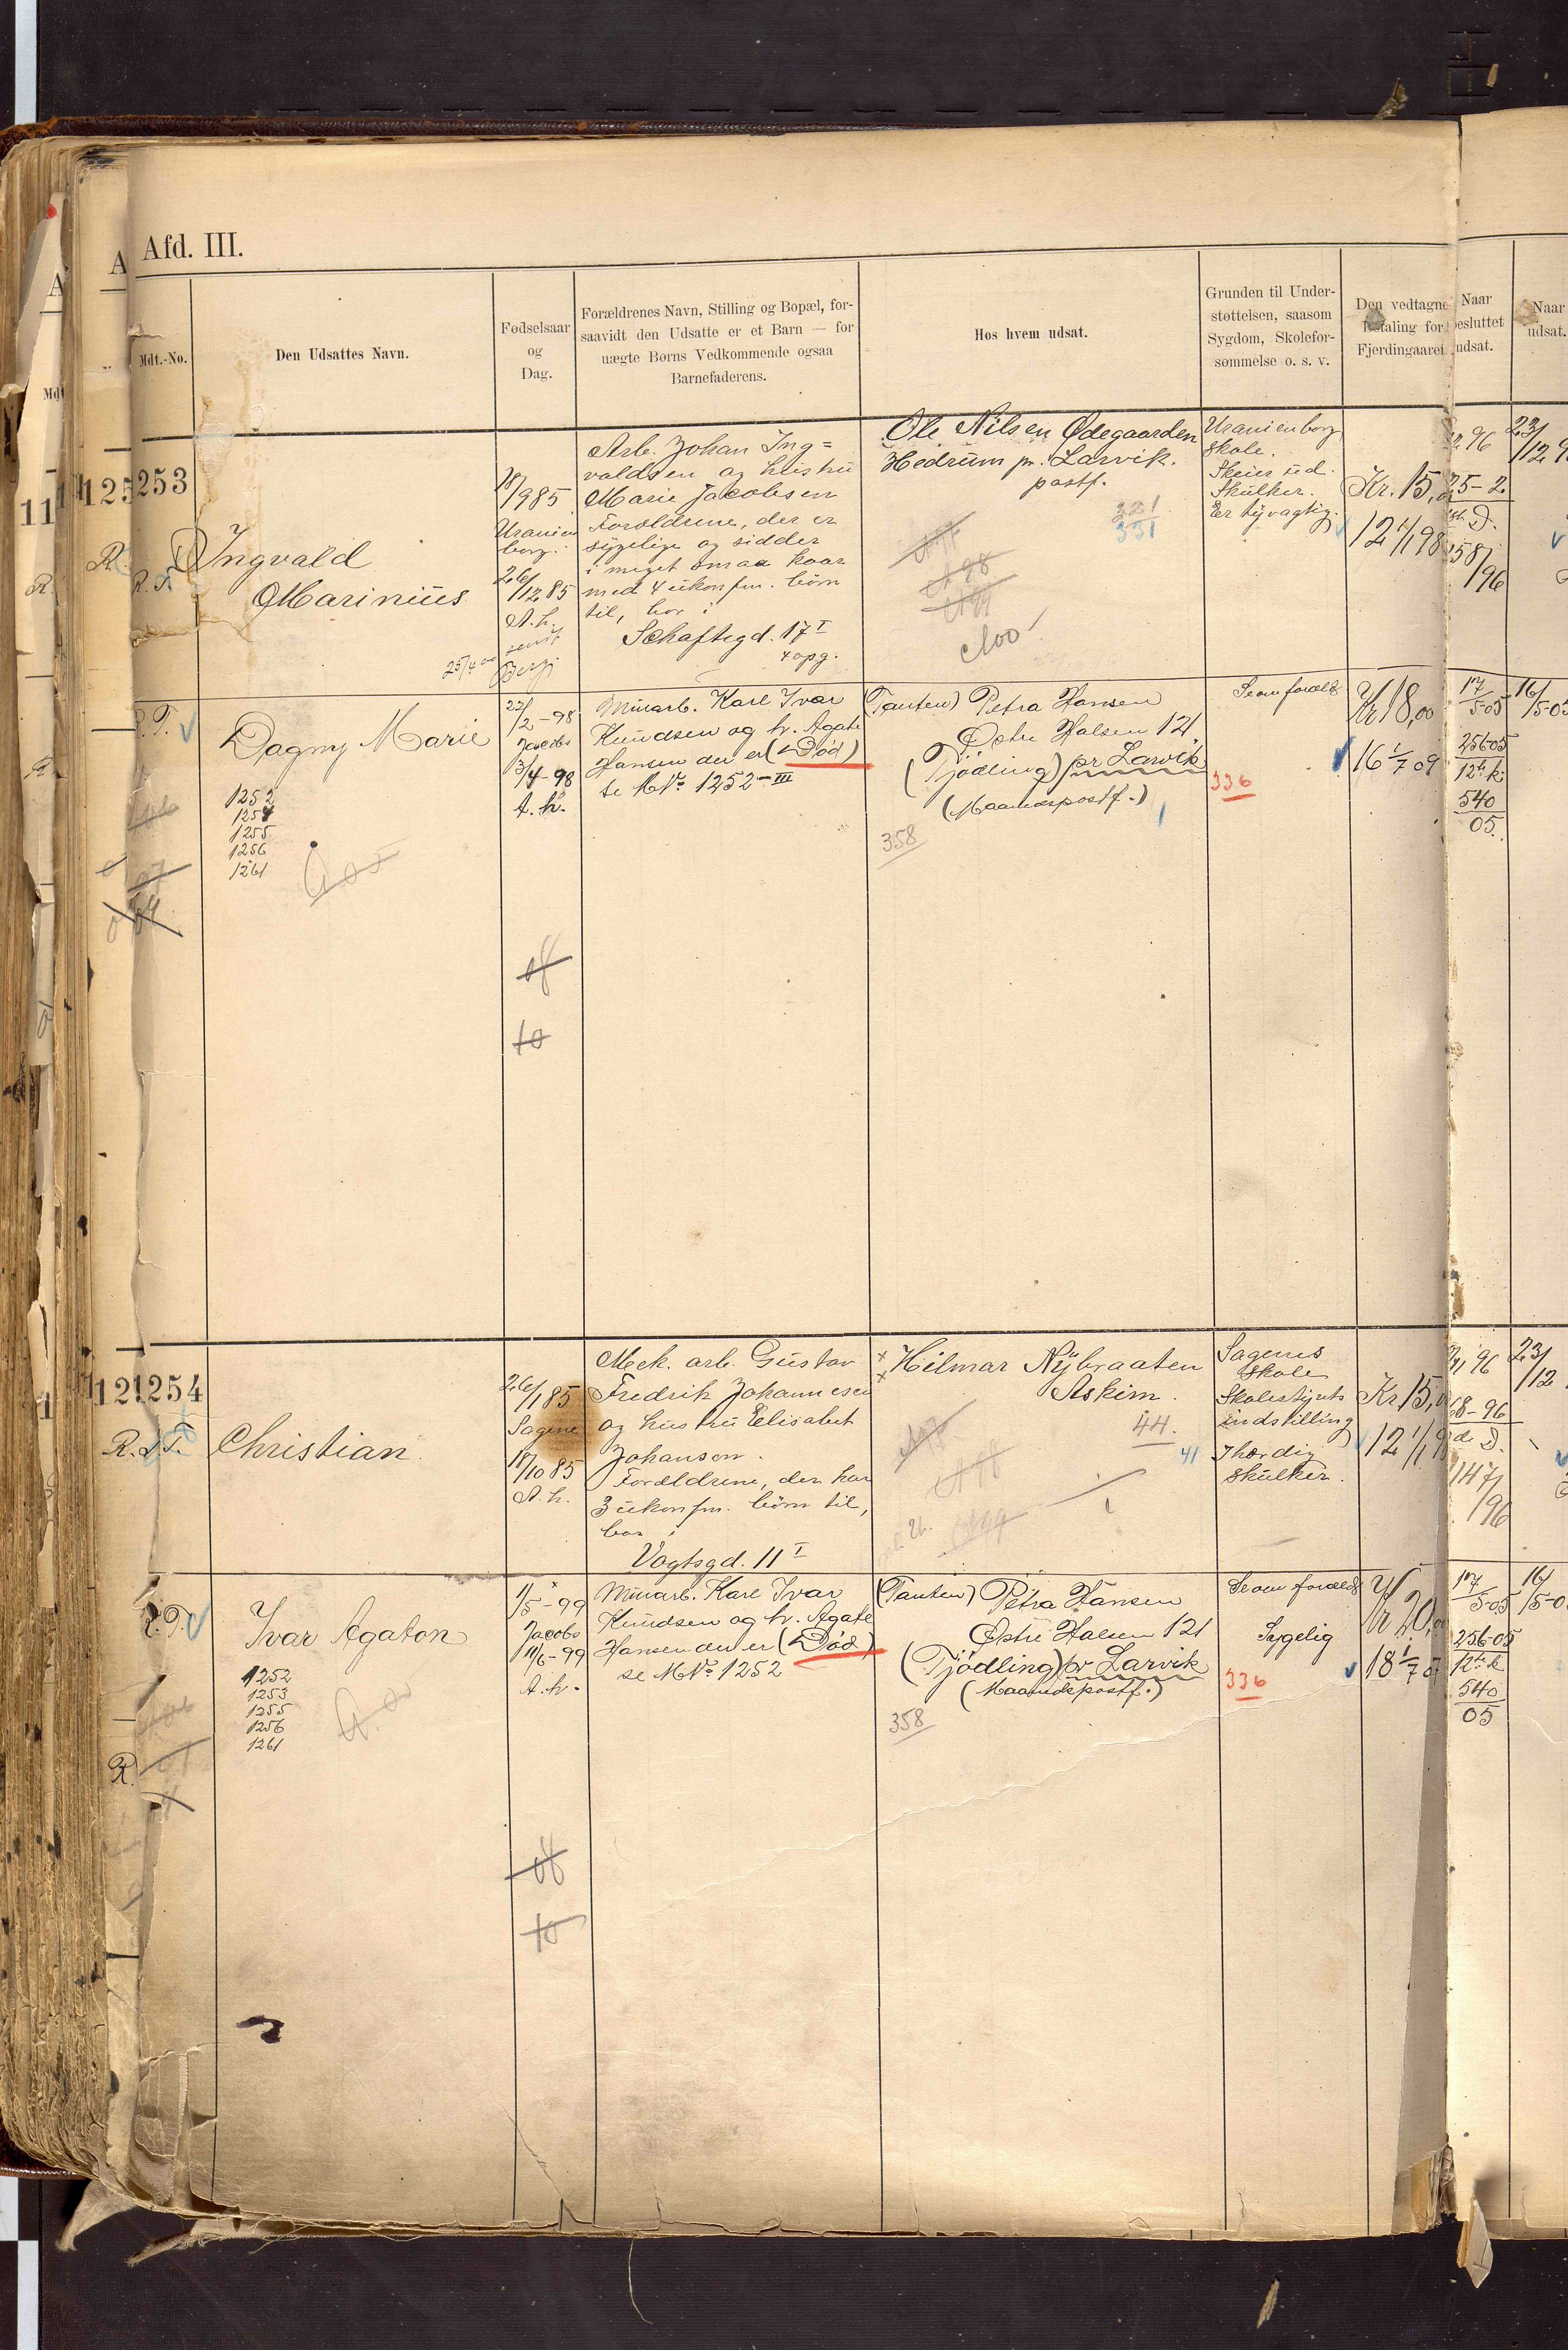 Afd. III.
Mdt.-No.
Den Udsattes Navn.
Fødselsaar
og
Dag.
Forældrenes Navn, Stilling og Bopæl, for-
saavidt den Udsatte er et Barn — for
uægte Børns Vedkommende ogsaa
Barnefaderens.
Hos hvem udsat.
Grunden til Under-
støttelsen, saasom
Sygdom, Skolefor-
sømmelse o. s. v.
Den vedtagne
Betaling for
Fjerdingaaret.
Naar
besluttet
udsat.
Naar
udsat.
253
R. T.
Ingvald
Marinius
18/9 85
Uranien
borg.
26/12 85
A. h.
25/4 00
Arb. Johan Ing=
valdsen og hustru
Marie Jacobsen
Forældrene, der er
sygelige og sidder
i meget smaa kaar
med 4 ukonfm. børn
til, bor i
Schaftegd. 17 I
4 opg.
Ole Nilsen Ødegaarden
Hedrum pr. Larvik.
postf.
221
331
A98
A99
A00
Uranienborg
skole.
Skeier ud.
Skulker.
Er tyvagtig.
Kr. 15,
12 1/1 98
96
25-2
D.
258/96
23/12 9
R. T.
Dagny Marie
1252
1254
1255
1256
1261
22/2-98
Jacobs
3/4-98
A. h.
Murarb. Karl Ivar
Knudsen og h. Agate
Hansen der er (Død)
se M No 1252-III
(Tanten) Petra Hansen
Østre Halsen 121
(Tjødling) pr Larvik
(Maanedspostf.)
358
Se om foræld
336
Kr 18,00
16 1/7 09
17/5-05
256-05
12te k.
540
05.
16/5-05
1254
R. T.
Christian
26/1 85
Sagene
18/10 85
A. h.
Mek. arb. Gustav
Fredrik Johannesen
og hustru Elisabet
Johansen.
Forældrene, der har
3 ukonfm. børn til,
bor i
Vogtsgd. 11 I
Hilmar Nybraaten
Askim.
44.
41
A98
A99
Sagenes
Skole
Skolestyrets
indstilling
Ihærdig
skulker.
Kr 15,
12 1/1 98
96
68-96
D.
147/96
23/12
R. T.
Ivar Agaton
1252
1253
1255
1256
1261
1/5-99
Jacobs
11/6-99
A. h.
Murarb. Karl Ivar
Knudsen og h. Agate
Hansen der er (Død)
se M No 1252
(Tanten) Petra Hansen
Østre Halsen 121
(Tjødling) pr Larvik
(Maanedspostf.)
358
Se om foræld
Sygelig
336
Kr 20,
18 1/7 0
17/5-05
256-05
12te k
540
05
16/5-0